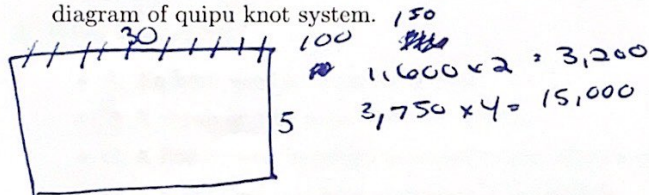 diagram of quipu knot system.
150
30
100
1,600 x 2 = 3,200
5
3,750 x 4 = 15,000